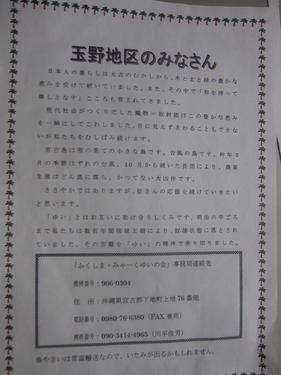 玉野地区のみなさん
日本人の暮らしは太古のむかしから、水と土と緑の豊かな
恵みを受けて続いていました。また、その中で「和を持って
尊しとなす」こころも育まれてきました。
現代社会がつくりだした魔物=放射能はこの豊かな恵み
を一瞬にしてこわしました。目に見えずさわることもできな
いが私たちをむしばみ続けます。
宮古島は南の果ての小さな島です。台風の島です。昨年8
月の季節はずれの台風、10月から続いた長雨により、農業
生産はどん底に落ち、かつてない大凶作です。
ささやかではありますが、皆さんの応援を続けていきたい
と思います。
「ゆい」とはお互いに助け合うしくみです。明治の中ごろ
まで私たちは数百年間琉球王朝により、奴隷状態に落とされ
ていました。その苦難を「ゆい」の精神で乗り切りました。
「ふくしま・みゃーくゆいの会」事務局連絡先
郵便番号:906-0304
住 所:沖縄県宮古郡下地町上地76番地
電話番号:0980-76-6380(FAX兼用)
携帯番号:090-3414-4965(川平俊男)
※やさいは常温輸送なので、いたみが出るかもしれません。